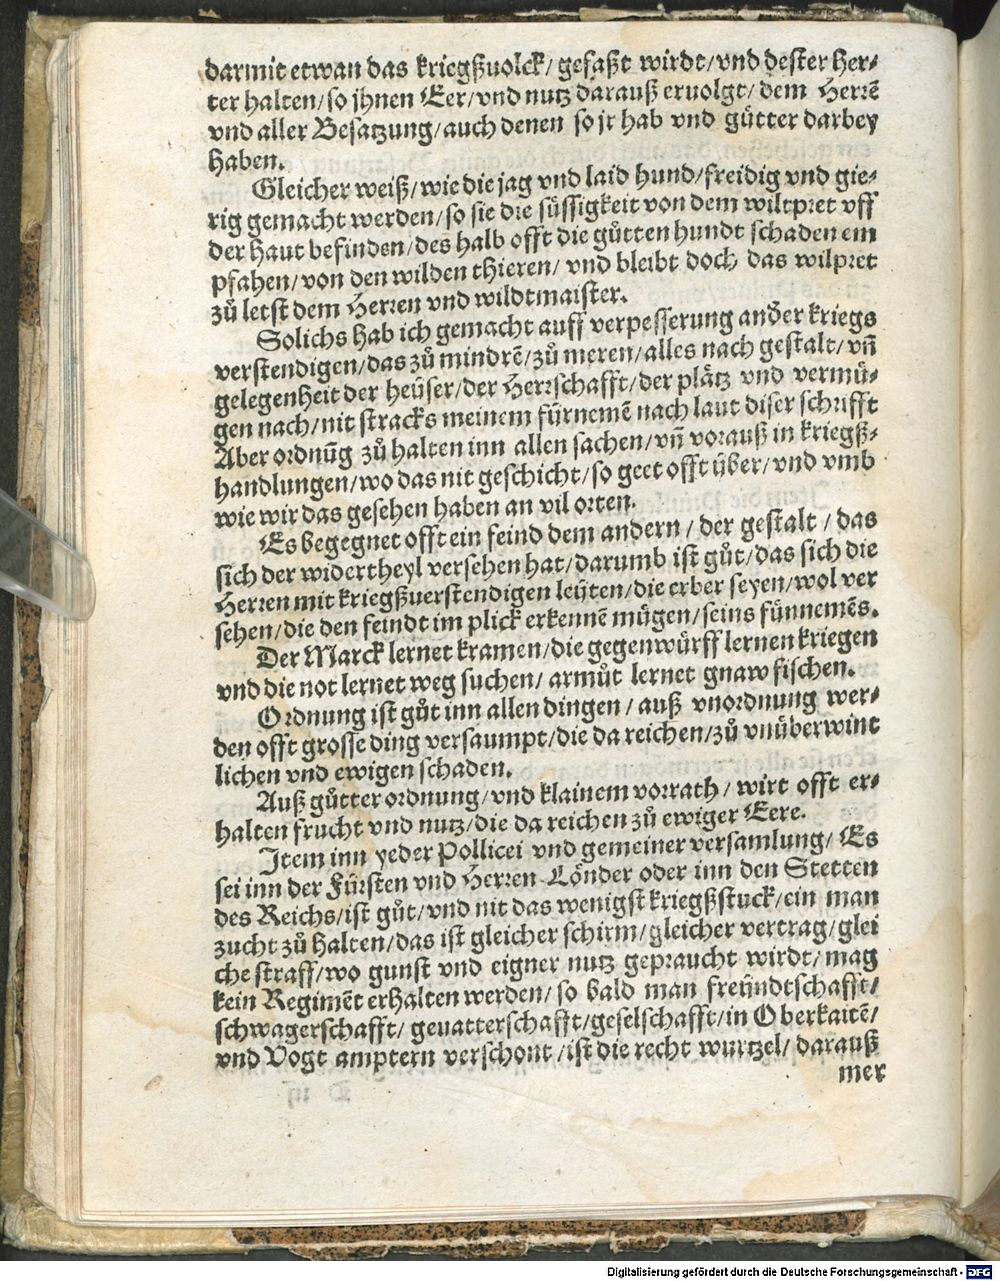 darmit etwan das kriegßuolck/ gefaßt wirdt/vnd dester her⸗
ter halten/so jhnen Eer/vnd nutz darauß eruolgt/ dem Herrē
vnd aller Besatzung/auch denen so jr hab vnd gůtter darbey
haben.
Gleicher weiß/wie die jag vnd laid hund/freidig vnd gie⸗
rig gemacht werden/so sie die süssigkeit von dem wiltpret vff
der haut befinden/des halb offt die gůtten hundt schaden em
pfahen/von den wilden thieren/ vnd bleibt doch das wilpret
zů letst dem Herren vnd wildtmaister.
Solichs hab ich gemacht auff verpesserung anďer kriegs
verstendigen/das zů mindrē/zů meren/alles nach gestalt/vñ
gelegenheit der heüser/der Herrschafft/der plätz vnd vermü⸗
gen nach/nit stracks meinem fürnemē nach laut diser schrifft
Aber ordnūg zů halten inn allen sachen/vñ vorauß in kriegß⸗
handlungen/wo das nit geschicht/so geet offt über/vnd vmb
wie wir das gesehen haben an vil orten.
Es begegnet offt ein feind dem andern/ der gestalt/ das
sich der widertheyl versehen hat/darumb ist gůt/das sich die
Herren mit kriegßuerstendigen leüten/die erber seyen/wol ver
sehen/die den feindt im plick erkennē mügen/seins fünnemēs.
Der Marck lernet kramen/die gegenwürff lernen kriegen
vnd die not lernet weg suchen/ armůt lernet gnaw fischen.
Ordnung ist gůt inn allen dingen/ auß vnordnung wer⸗
den offt grosse ding versaumpt/die da reichen/zů vnüberwint
lichen vnd ewigen schaden.
Auß gůtter ordnung/vnd klainem vorrath/ wirt offt er⸗
halten frucht vnd nutz/die da reichen zů ewiger Eere.
Item inn yeder Pollicei vnd gemeiner versamlung/ Es
sei inn der Fürsten vnd Herren Lönder oder inn den Stetten
des Reichs/ist gůt/vnd nit das wenigst kriegßstuck/ein man
zucht zů halten/das ist gleicher schirm/gleicher vertrag/glei
che straff/wo gunst vnd eigner nutz gepraucht wirdt/ mag
kein Regimēt erhalten werden/ so bald man freündtschafft/
schwagerschafft/ geuatterschafft/geselschafft/in Oberkaitē/
vnd Vogt amptern verschont/ist die recht wurtzel/ darauß
mer
Digitalisierung gefördert durch die Deutsche Forschungsgemeinschaft - DFG